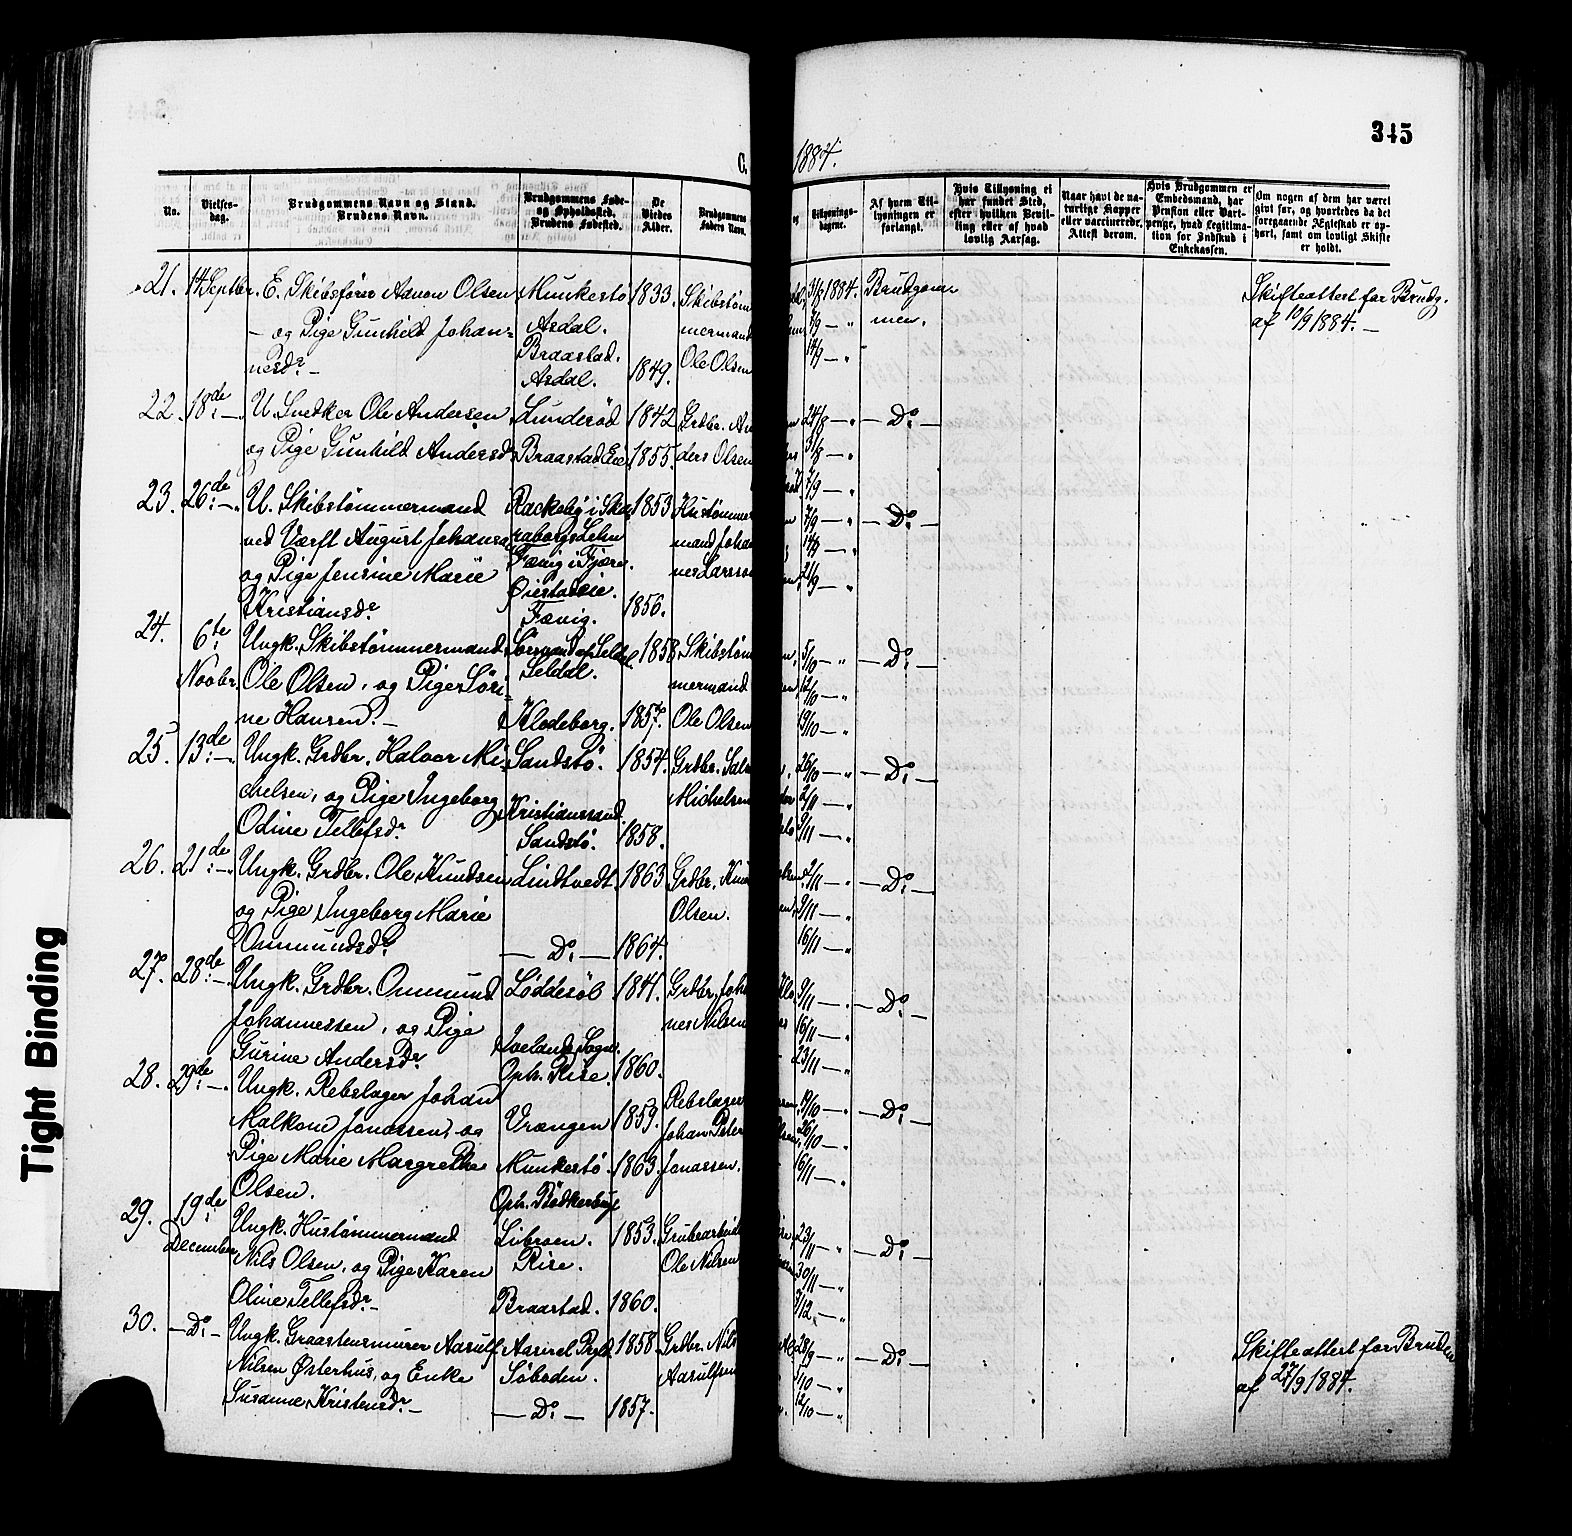 345
C.
1884.
No.
Vielses-
dag.
Brudgommens Navn og Stand.
Brudens Navn.
Brudgommens Føde-
og Opholdssted.
Brudens Fødested.
De
Viedes
Alder.
Brudgommens
Faders Navn.
og
Tillysnings-
dagene.
Af hvem Til-
lysningen er
forlangt.
Hvis Tillysning ei
har fundet Sted,
efter hvilken Bevil-
ling eller af hvad
lovlig Aarsag.
Naar havt de na-
turlige Kopper
eller vaccinerede,
Attest derom.
Hvis Brudgommen er
Embedsmand, har
Pension eller Vart-
penge, hvad Legitima-
tion for Indskud i
Enkekassen.
Om nogen af dem har været
givt før, og hvorledes da det
foregaaende Ægteskab er op-
hørt, samt om lovligt Skifte
er holdt.
21. 14 Septbr. E. Skibsfører Adnon Olsen Munkestø 1833. Skibstøm 31/8 1884. Brudgom- Skifteattest for Brudg.
– og Pige Gunhild Johan= Asdal. mermand 7/9 — " men. af 10/9 1884. —
nesdr – Braastad. Ole Olsen 14/9 — "
Asdal. 1849.
22. 18de — U. Snedker Ole Andersen Lunderød 1842 Grdbr. An 24/8 — " — Do —
og Pige Gunhild Andersd. Braastad Eie 1855. ders Olsen 31/8 — "
7/9 — "
23. 26de — U. Skibstømmermand Rackeby i Ska 1853 Hustømmer 7/9 — " — Do —
ved Værft August Johans raborgs Lehn mand Johan 14/9 — "
og Pige Jensine Marie Fævig i Fjære. nes Larsson 21/9 — "
Kristiansdr Øiestadeie.
Fævig. 1856.
24. 6te Ungk. Skibstømmermand Seldal 1858 Skibstøm 5/10 — " — Do —
Novbr. Ole Olsen, og Pige Søri- Seldal. mermand 12/10 — "
ne Hansen. – Klodeborg. 1857. Ole Olsen 19/10 — "
25. 13de — Ungk. Grdbr. Halvor Mi- Sandstø. 1854. Grdbr. 26/10 — " — Do —
chelsen, og Pige Ingeborg Kristianssand Michelsen 2/11 — "
Odine Tellefsdr Sandstø. 1858. 9/11 — "
26. 21de — Ungk. Grdbr. Ole Knudsen Lindtvedt 1863 Grdbr. Knu 2/11 — " — Do —
og Pige Ingeborg Marie Olsen. 9/11 — "
Ommundsdr — Do — 1864. 16/11 — "
27. 28de — Ungk. Grdbr. Ommund Løddesøl 1841. Grdbr. Joh 9/11 — " — Do —
Johannessen, og Pige nes Nilsen 16/11 — "
Gurine Andersdr Sogn. 23/11 — "
Oph. Rise. 1860.
28. 29de — Ungk. Rebslager Johan Rebslager 19/10 — " — Do —
Malkom Jonassen, og Vrængen 1859. Johan Peter 26/10 — "
Pige Marie Margrethe Munkestø. 1863. Jonassen. 16/11 — "
Olsen. Oph. Bødkerbuy
29. 19de Ungk. Hustømmermand Libroen. 1853. Grubearbeid 23/11 — " — Do —
December Nils Olsen, og Pige Karen Rise. Ole Nilsen 30/11 — "
Oline Tellefsdr – Braastad. 1860. 7/12 — "
30. — Do — Ungk. Graastensmurer Aasulf 1858 Grdbr. Nils 28/9 — " — Do — Skifteattest for Bruden
Nilsen Østerhus, og Enke Søboden. Aasulfsen /10 — " af 27/9 1884.
Susanne Kristensdr – — Do — 1857. 12/10 — "
Tight Binding